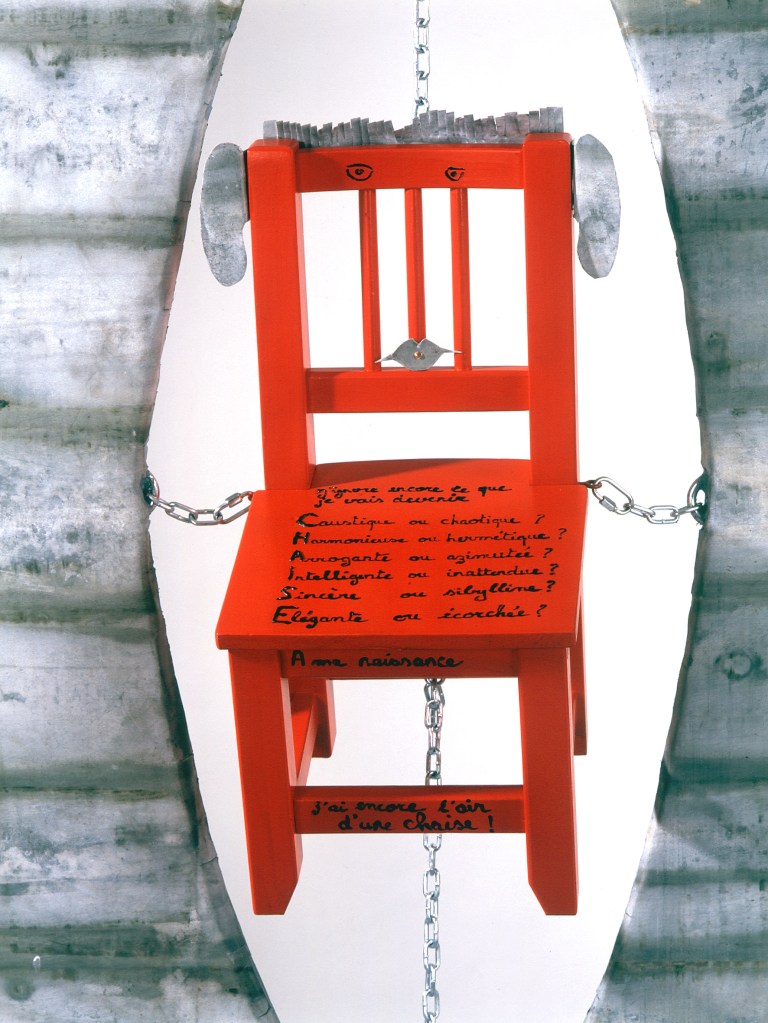 j'ignore encore ce que
je vais devenir
Caustique ou chaotique ?
Harmonieuse ou hermétique ?
Arrogante ou azimutée ?
Intelligente ou inattendue ?
Sincère ou sibylline ?
Elégante ou écorchée ?
A ma naissance
j'ai encore l'air
d'une chaise !